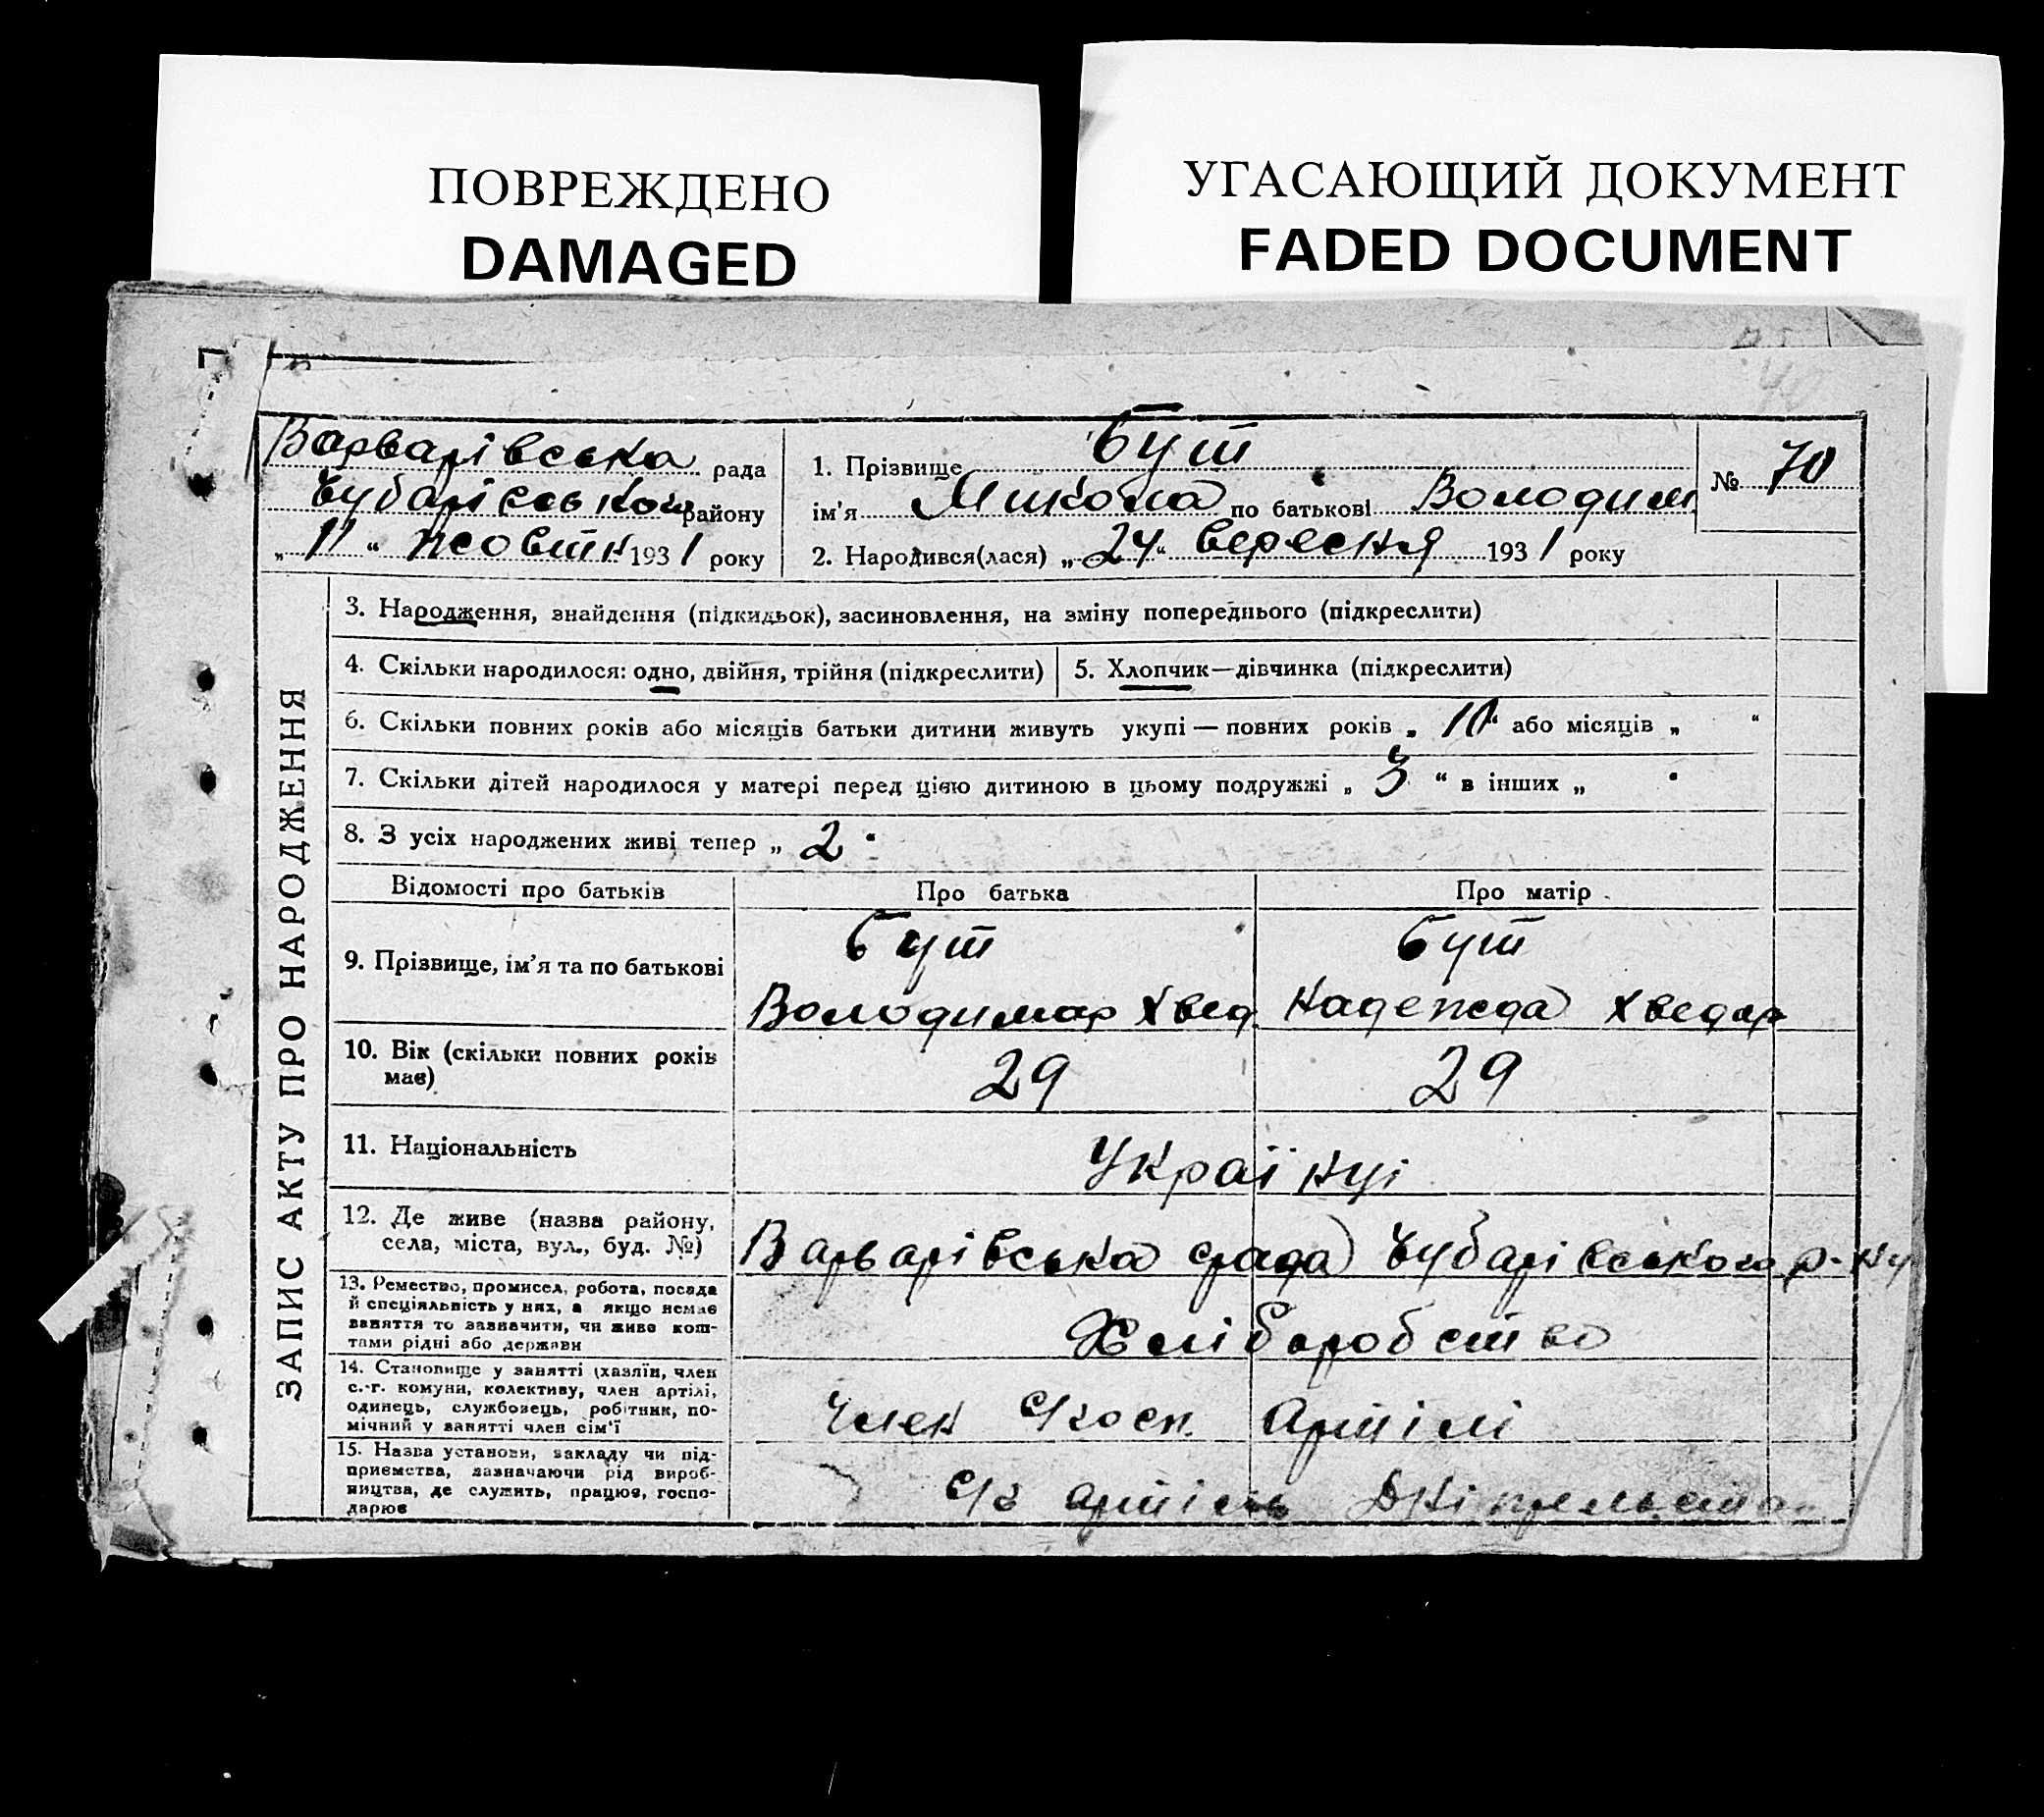 ПОВРЕЖДЕНО
DAMAGED
УГАСАЮЩИЙ ДОКУМЕНТ
FADED DOCUMENT
Варварівська рада
Чубарівського району
„ 11 “ жовтн 1931 року
1. Прізвище Бут
ім'я Микола по батькові Володим
2. Народився(лася) „ 24 “ вересня 1931 року
№ 70
ЗАПИС АКТУ ПРО НАРОДЖЕННЯ
3. Народження, знайдення (підкидьок), засиновлення, на зміну попереднього (підкреслити)
4. Скільки народилося: одно, двійня, трійня (підкреслити)
5. Хлопчик—дівчинка (підкреслити)
6. Скільки повних років або місяців батьки дитини живуть укупі — повних років „ 10 “ або місяців „ “
7. Скільки дітей народилося у матері перед цією дитиною в цьому подружжі „ 3 “ в інших „ “
8. З усіх народжених живі тепер „ 2 “
Відомості про батьків Про батька Про матір
9. Прізвище, ім'я та по батькові
Бут
Володимар Хвед.
Бут
Надежда Хведар
10. Вік (скільки повних років
має)
29 29
11. Національність
Українці
12. Де живе (назва району,
села, міста, вул., буд. №)
Варварівська рада Чубарівського р-ну
13. Ремество, промисел, робота, посада
й спеціяльність у них, а якщо немає
заняття то зазначити, чи живе кош-
тами рідні або держави
Хліборобство
14. Становище у занятті (хазяїн, член
с.-г. комуни, колективу, член артілі,
одинець, службовець, робітник, по-
мічний у занятті член сім'ї
Член с/госп. Артілі
15. Назва установи, закладу чи під-
приємства, зазначаючи рід вироб-
ництва, де служить, працює, госпо-
дарює
с/г артіль